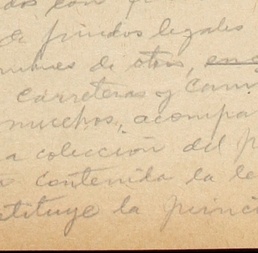 dos con
de fundos legales
munes de otros, en
carreteras y cam
muchos, acompa
a colección del p
a contenida la le
stituye la princi